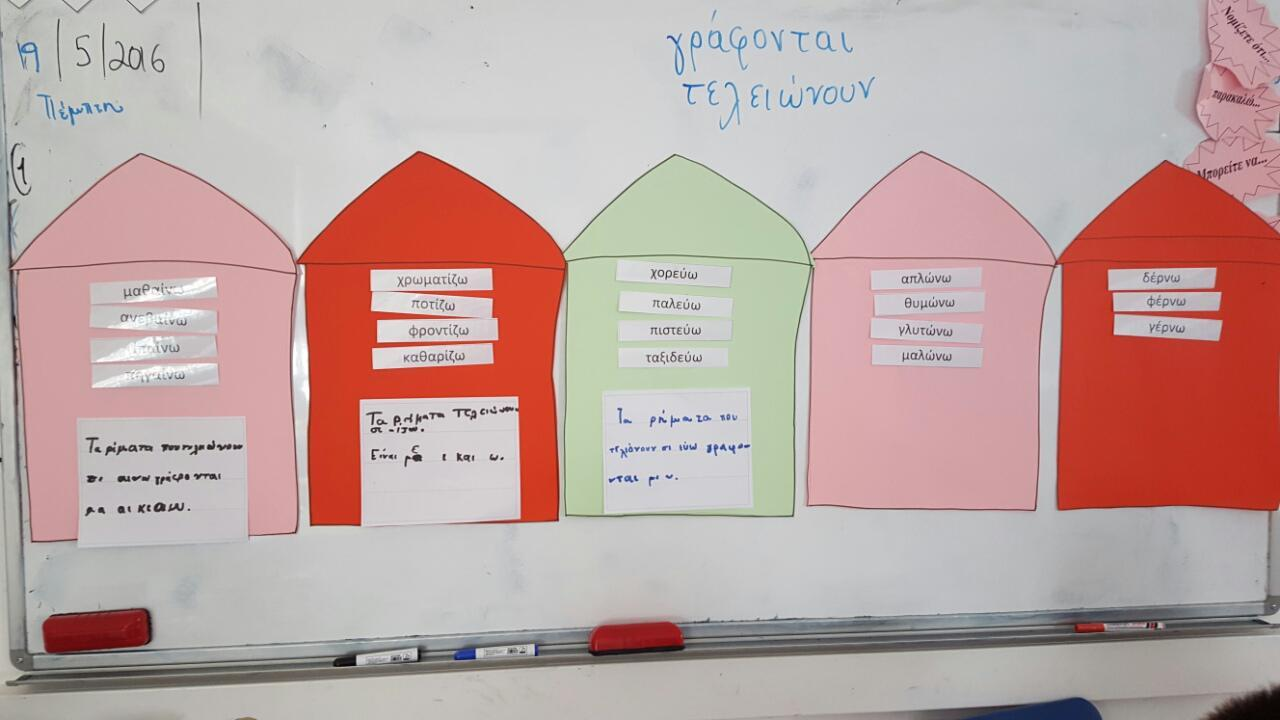 19/5/2016
Πέμπτη
γράφονται
τελειώνουν
Νομίζετε ότι...
παρακαλώ...
Μπορείτε να...
(1
μαθαίνω
ανεβαίνω
πηγαίνω
χρωματίζω
ποτίζω
φροντίζω
καθαρίζω
Τα ρήματα τελειώνουν
σε -ιζω.
Είναι με ι και ω.
χορεύω
παλεύω
πιστεύω
ταξιδεύω
Τα ρήματα που
τελιόνουν σε εύω γραφο
νται με υ.
απλώνω
θυμώνω
γλυτώνω
μαλώνω
δέρνω
φέρνω
γέρνω
Τα ρίματα που
σε αινω γράφονται
με αι και ω.